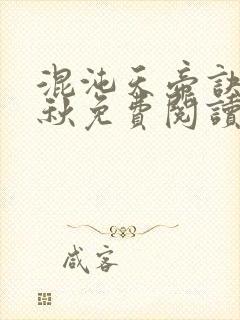 混沌天帝訣
秋免費閱讀
咸客